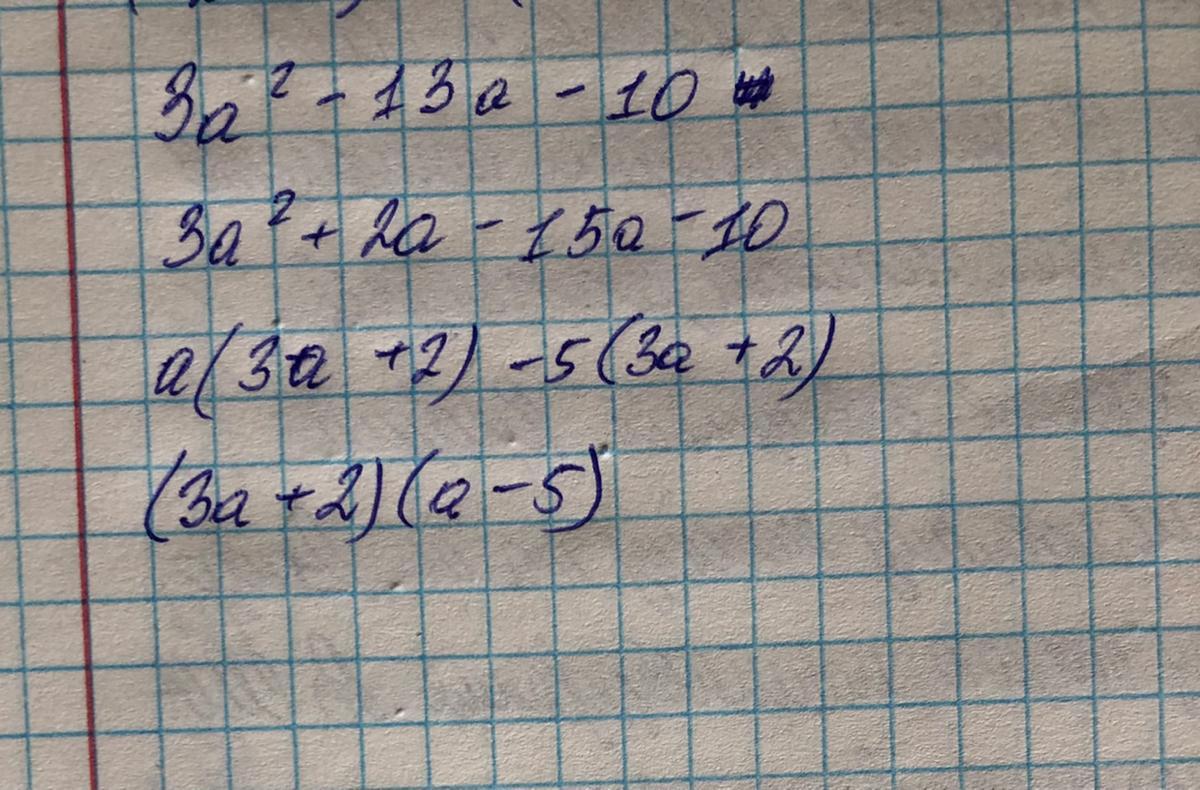 3a² - 13a - 10
3a² + 2a - 15a - 10
a(3a + 2) - 5(3a + 2)
(3a + 2)(a - 5)